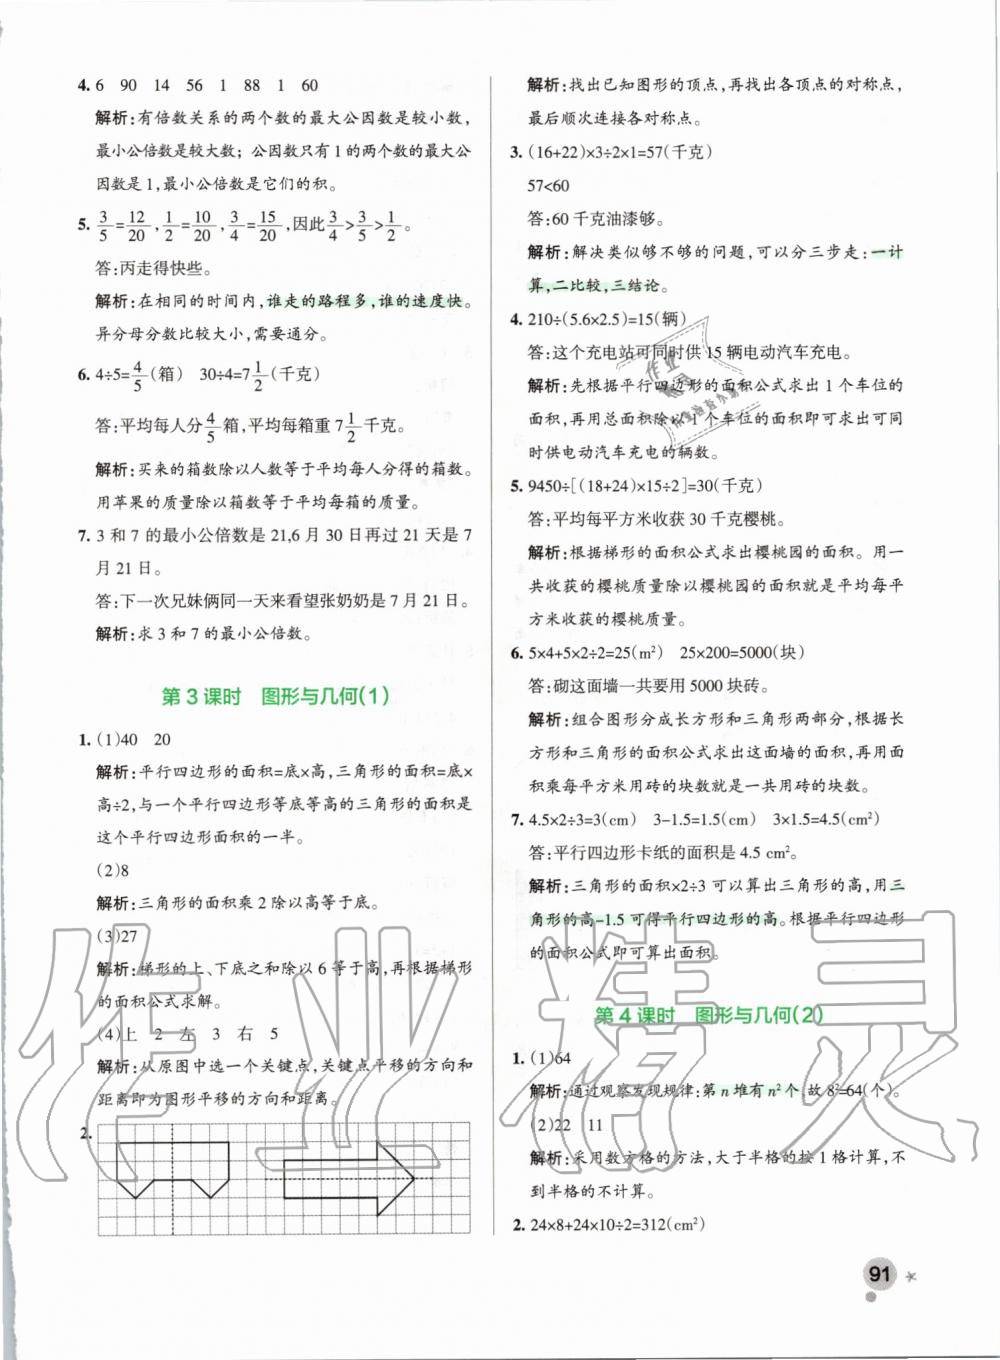 4. 6 90 14 56 1 88 1 60
解析:有倍数关系的两个数的最大公因数是较小数,
最小公倍数是较大数;公因数只有1的两个数的最大公
因数是1,最小公倍数是它们的积。
5. 3/5=12/20,1/2=10/20,3/4=15/20,因此3/4>3/5>1/2。
答:丙走得快些。
解析:在相同的时间内,谁走的路程多,谁的速度快。
异分母分数比较大小,需要通分。
6. 4÷5=4/5(箱) 30÷4=7 1/2(千克)
答:平均每人分4/5箱,平均每箱重7 1/2千克。
解析:买来的箱数除以人数等于平均每人分得的箱数。
用苹果的质量除以箱数等于平均每箱的质量。
7. 3和7的最小公倍数是21,6月30日再过21天是7
月21日。
答:下一次兄妹俩同一天来看望张奶奶是7月21日。
解析:求3和7的最小公倍数。
第3课时 图形与几何(1)
1. (1)40 20
解析:平行四边形的面积=底×高,三角形的面积=底×
高÷2,与一个平行四边形等底等高的三角形的面积是
这个平行四边形面积的一半。
(2)8
解析:三角形的面积乘2除以高等于底。
(3)27
解析:梯形的上、下底之和除以6等于高,再根据梯形
的面积公式求解。
(4)上 2 左 3 右 5
解析:从原图中选一个关键点,关键点平移的方向和
距离即为图形平移的方向和距离。
2.
解析:找出已知图形的顶点,再找出各顶点的对称点,
最后顺次连接各对称点。
3. (16+22)×3÷2×1=57(千克)
57<60
答:60千克油漆够。
解析:解决类似够不够的问题,可以分三步走:一计
算,二比较,三结论。
4. 210÷(5.6×2.5)=15(辆)
答:这个充电站可同时供15辆电动汽车充电。
解析:先根据平行四边形的面积公式求出1个车位的
面积,再用总面积除以1个车位的面积即可求出可同
时供电动汽车充电的辆数。
5. 9450÷[(18+24)×15÷2]=30(千克)
答:平均每平方米收获30千克樱桃。
解析:根据梯形的面积公式求出樱桃园的面积。用一
共收获的樱桃质量除以樱桃园的面积就是平均每平
方米收获的樱桃质量。
6. 5×4+5×2÷2=25(m²) 25×200=5000(块)
答:砌这面墙一共要用5000块砖。
解析:组合图形分成长方形和三角形两部分,根据长
方形和三角形的面积公式求出这面墙的面积,再用面
积乘每平方米用砖的块数就是一共用砖的块数。
7. 4.5×2÷3=3(cm) 3-1.5=1.5(cm) 3×1.5=4.5(cm²)
答:平行四边形卡纸的面积是4.5 cm²。
解析:三角形的面积×2÷3可以算出三角形的高,用三
角形的高-1.5可得平行四边形的高。根据平行四边形
的面积公式即可算出面积。
第4课时 图形与几何(2)
1. (1)64
解析:通过观察发现规律:第n堆有n²个,故8²=64(个)。
(2)22 11
解析:采用数方格的方法,大于半格的按1格计算,不
到半格的不计算。
2. 24×8+24×10÷2=312(cm²)
91
作业精灵